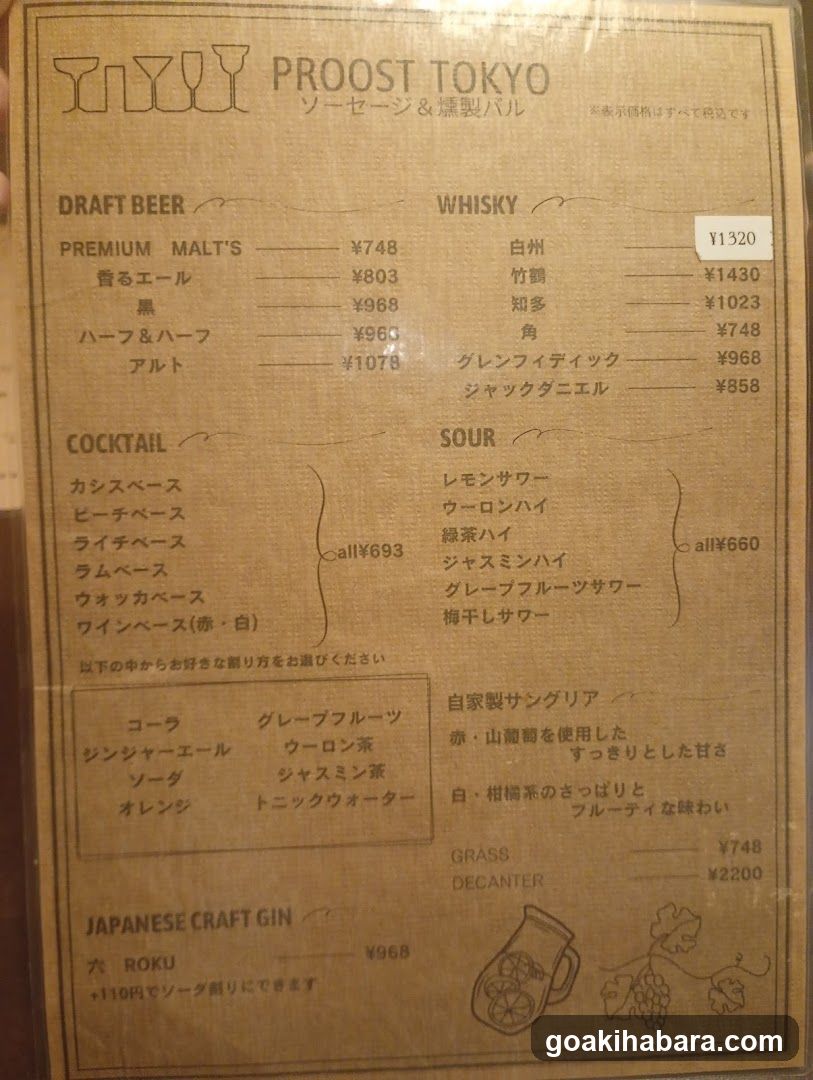 PROOST TOKYO
ソーセージ＆燻製バル
※表示価格はすべて税込です
DRAFT BEER
PREMIUM MALT'S ¥748
香るエール ¥803
黒 ¥968
ハーフ＆ハーフ ¥968
アルト ¥1078
WHISKY
白州 ¥1320
竹鶴 ¥1430
知多 ¥1023
角 ¥748
グレンフィディック ¥968
ジャックダニエル ¥858
COCKTAIL
カシスベース
ピーチベース
ライチベース
ラムベース
ウォッカベース
ワインベース(赤・白)
all¥693
以下の中からお好きな割り方をお選びください
コーラ
ジンジャーエール
ソーダ
オレンジ
グレープフルーツ
ウーロン茶
ジャスミン茶
トニックウォーター
SOUR
レモンサワー
ウーロンハイ
緑茶ハイ
ジャスミンハイ
グレープフルーツサワー
梅干しサワー
all¥660
自家製サングリア
赤・山葡萄を使用した
すっきりとした甘さ
白・柑橘系のさっぱりと
フルーティな味わい
GRASS ¥748
DECANTER ¥2200
JAPANESE CRAFT GIN
六 ROKU ¥968
+110円でソーダ割りにできます
goakihabara.com